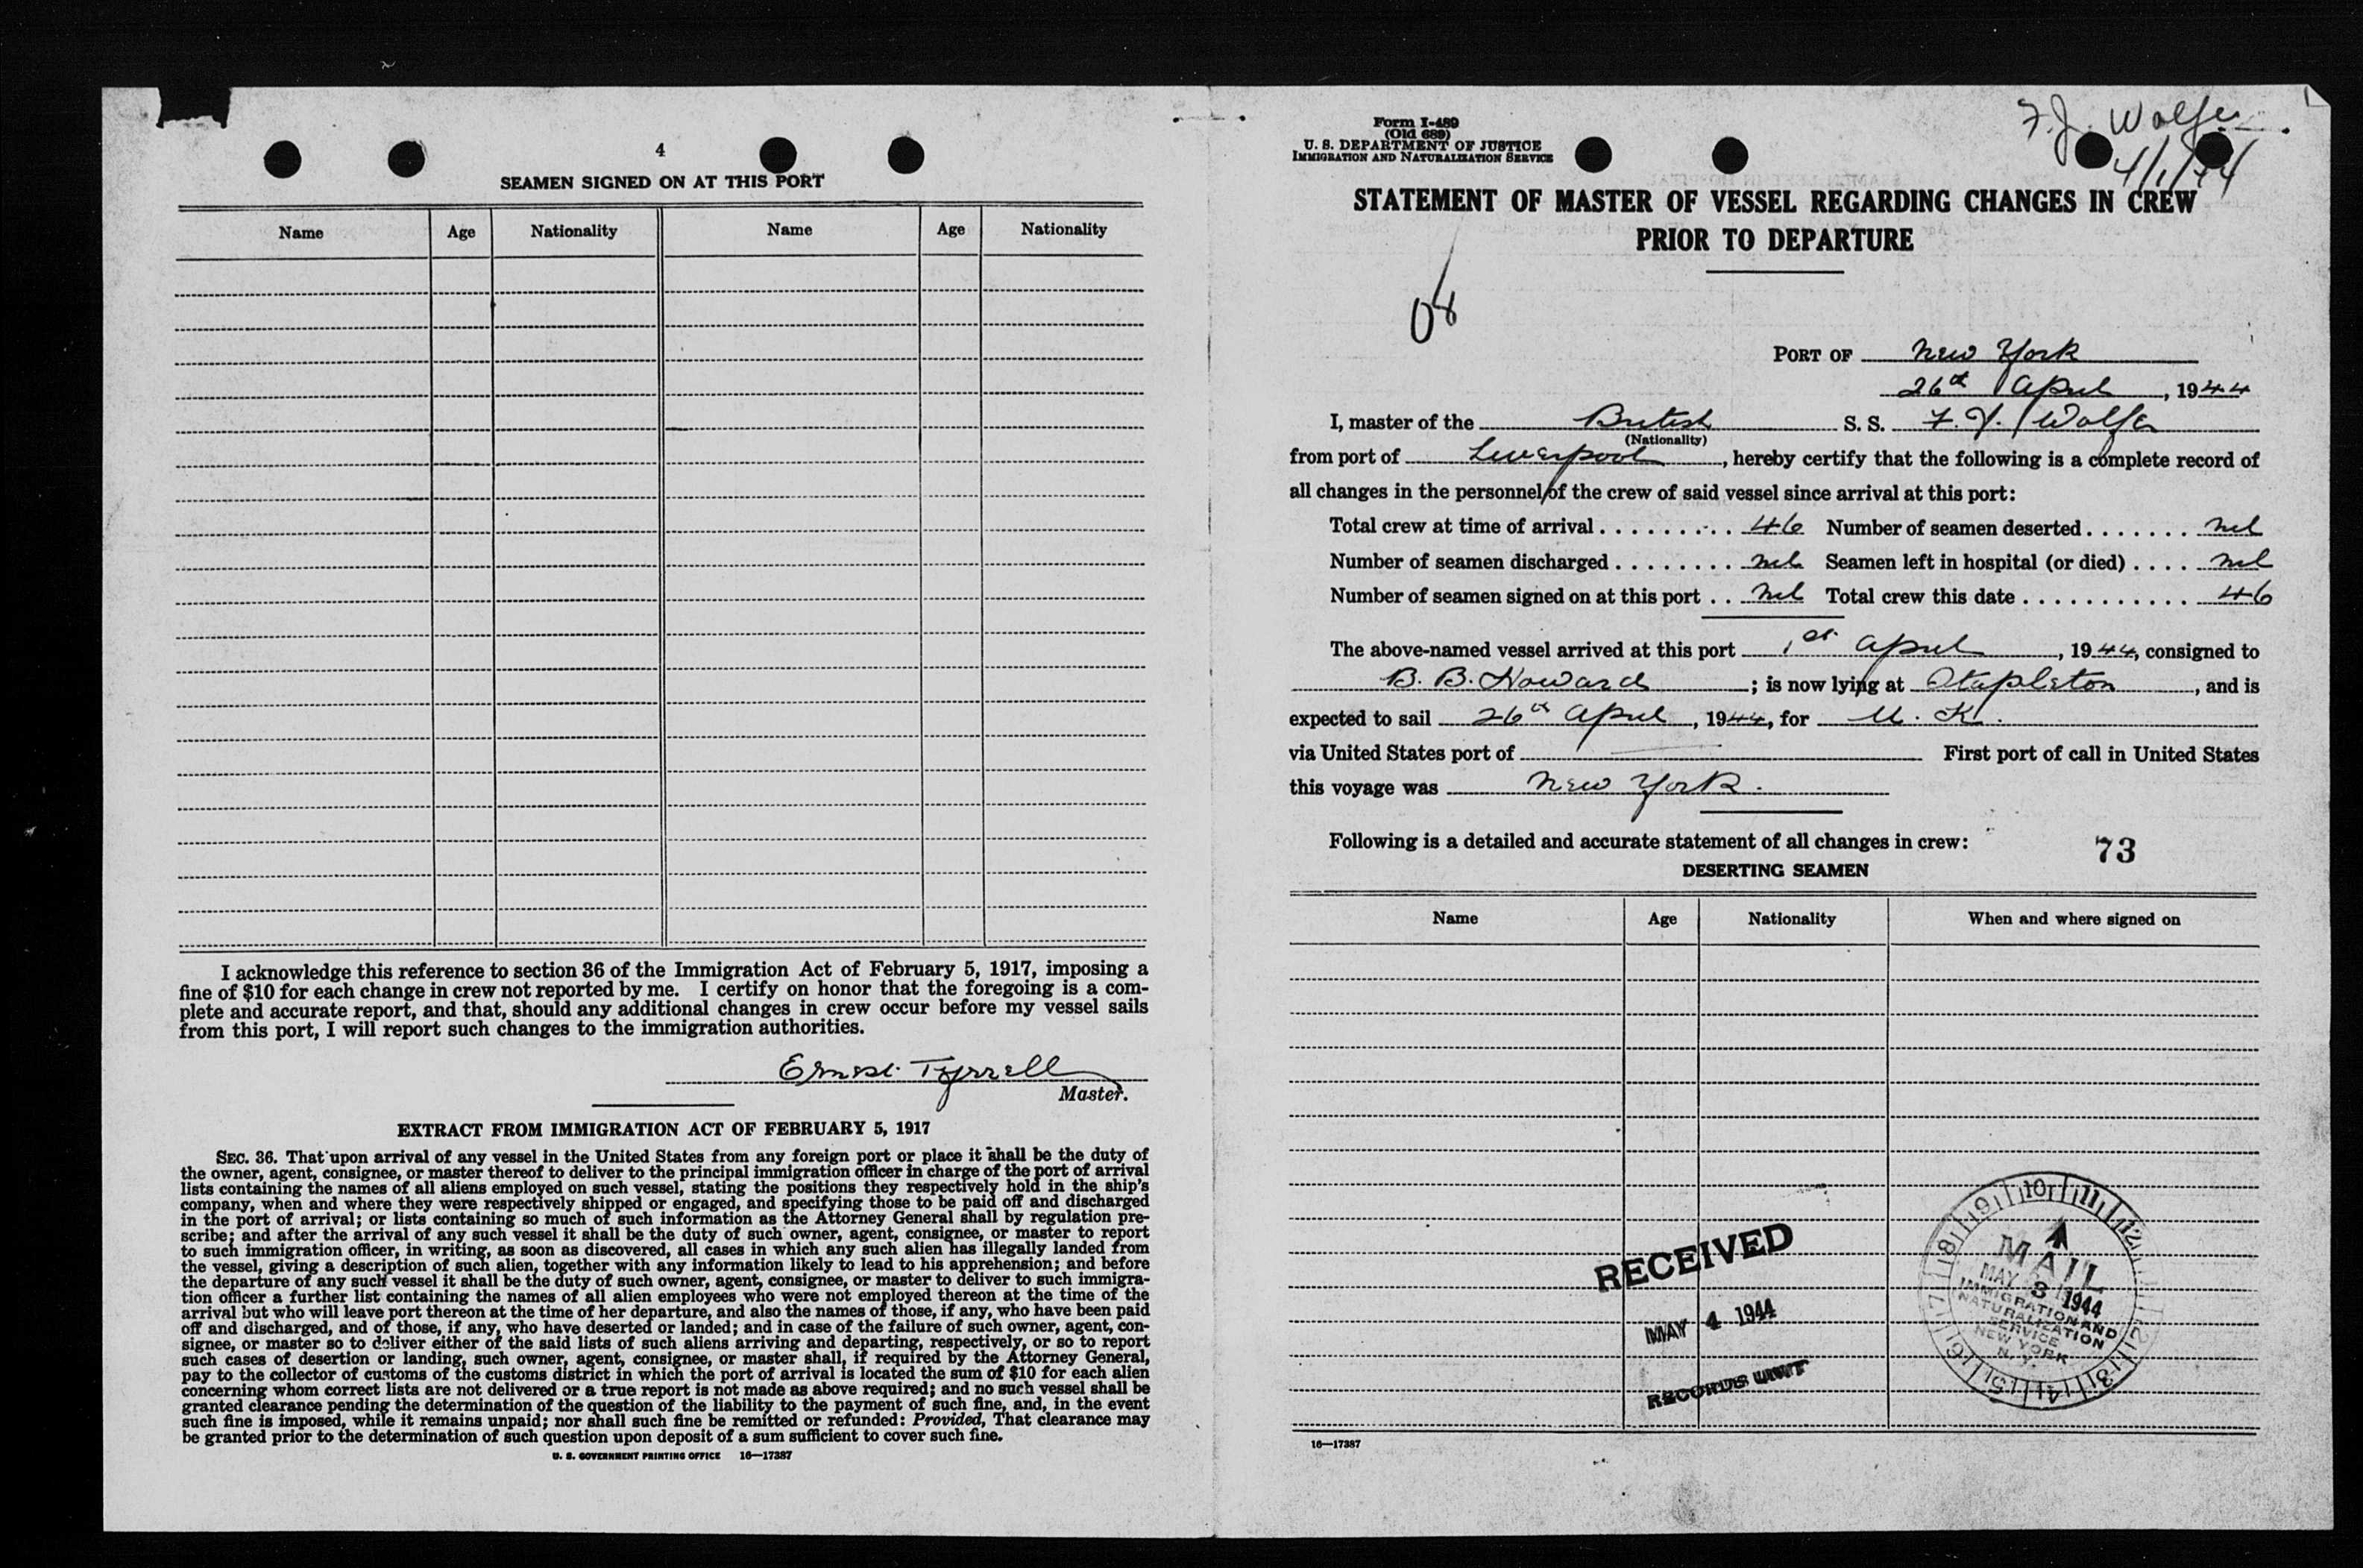 4
SEAMEN SIGNED ON AT THIS PORT
Name Age Nationality Name Age Nationality
I acknowledge this reference to section 36 of the Immigration Act of February 5, 1917, imposing a
fine of $10 for each change in crew not reported by me. I certify on honor that the foregoing is a com-
plete and accurate report, and that, should any additional changes in crew occur before my vessel sails
from this port, I will report such changes to the immigration authorities.
Ernest Tyrrell
Master.
EXTRACT FROM IMMIGRATION ACT OF FEBRUARY 5, 1917
SEC. 36. That upon arrival of any vessel in the United States from any foreign port or place it shall be the duty of
the owner, agent, consignee, or master thereof to deliver to the principal immigration officer in charge of the port of arrival
lists containing the names of all aliens employed on such vessel, stating the positions they respectively hold in the ship's
company, when and where they were respectively shipped or engaged, and specifying those to be paid off and discharged
in the port of arrival; or lists containing so much of such information as the Attorney General shall by regulation pre-
scribe; and after the arrival of any such vessel it shall be the duty of such owner, agent, consignee, or master to report
to such immigration officer, in writing, as soon as discovered, all cases in which any such alien has illegally landed from
the vessel, giving a description of such alien, together with any information likely to lead to his apprehension; and before
the departure of any such vessel it shall be the duty of such owner, agent, consignee, or master to deliver to such immigra-
tion officer a further list containing the names of all alien employees who were not employed thereon at the time of the
arrival but who will leave port thereon at the time of her departure, and also the names of those, if any, who have been paid
off and discharged, and of those, if any, who have deserted or landed; and in case of the failure of such owner, agent, con-
signee, or master so to deliver either of the said lists of such aliens arriving and departing, respectively, or so to report
such cases of desertion or landing, such owner, agent, consignee, or master shall, if required by the Attorney General,
pay to the collector of customs of the customs district in which the port of arrival is located the sum of $10 for each alien
concerning whom correct lists are not delivered or a true report is not made as above required; and no such vessel shall be
granted clearance pending the determination of the question of the liability to the payment of such fine, and, in the event
such fine is imposed, while it remains unpaid; nor shall such fine be remitted or refunded: Provided, That clearance may
be granted prior to the determination of such question upon deposit of a sum sufficient to cover such fine.
U. S. GOVERNMENT PRINTING OFFICE 16—17387
Form I-489
(Old 689)
U. S. DEPARTMENT OF JUSTICE
IMMIGRATION AND NATURALIZATION SERVICE
F. J. Wolfe
4/1/44
STATEMENT OF MASTER OF VESSEL REGARDING CHANGES IN CREW
PRIOR TO DEPARTURE
PORT OF New York
26th April, 1944
I, master of the British S. S. F. J. Wolfe
(Nationality)
from port of Liverpool, hereby certify that the following is a complete record of
all changes in the personnel of the crew of said vessel since arrival at this port:
Total crew at time of arrival . . . . . . . . . 46 Number of seamen deserted . . . . . . . nil
Number of seamen discharged . . . . . . . . nil Seamen left in hospital (or died) . . . . nil
Number of seamen signed on at this port . . nil Total crew this date . . . . . . . . . . . 46
The above-named vessel arrived at this port 1st April, 1944, consigned to
B. B. Howard; is now lying at Stapleton, and is
expected to sail 26th April, 1944, for U. K.
via United States port of First port of call in United States
this voyage was New York.
Following is a detailed and accurate statement of all changes in crew:
73
DESERTING SEAMEN
Name Age Nationality When and where signed on
RECEIVED
MAY 4 1944
RECORDS UNIT
9 10 11 12
MAIL
MAY 3 1944
IMMIGRATION AND
NATURALIZATION
SERVICE
NEW YORK
N. Y.
16—17387